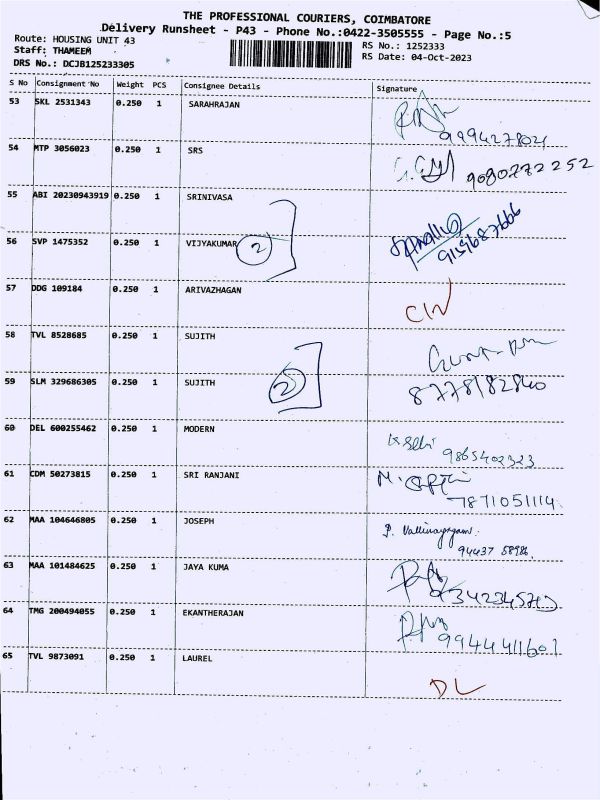 THE PROFESSIONAL COURIERS, COIMBATORE
Delivery Runsheet - P43 - Phone No.:0422-3505555 - Page No.:5
Route: HOUSING UNIT 43
Staff: THAMEEM
DRS No.: DCJB125233305
RS No.: 1252333
RS Date: 04-Oct-2023
S No Consignment No Weight PCS Consignee Details Signature
53 SKL 2531343 0.250 1 SARAHRAJAN
54 MTP 3056023 0.250 1 SRS 9080772252
55 ABI 20230943919 0.250 1 SRINIVASA
56 SVP 1475352 0.250 1 VIJYAKUMAR 2 9159687666
57 DDG 109184 0.250 1 ARIVAZHAGAN
58 TVL 8528685 0.250 1 SUJITH
59 SLM 329686305 0.250 1 SUJITH 2 8778182840
60 DEL 600255462 0.250 1 MODERN 9865402323
61 CDM 50273815 0.250 1 SRI RANJANI 7871051114
62 MAA 104646805 0.250 1 JOSEPH P. Vallinayagam
94437 58986
63 MAA 101484625 0.250 1 JAYA KUMA
64 TMG 200494055 0.250 1 EKANTHERAJAN 9944411601
65 TVL 9873091 0.250 1 LAUREL DL